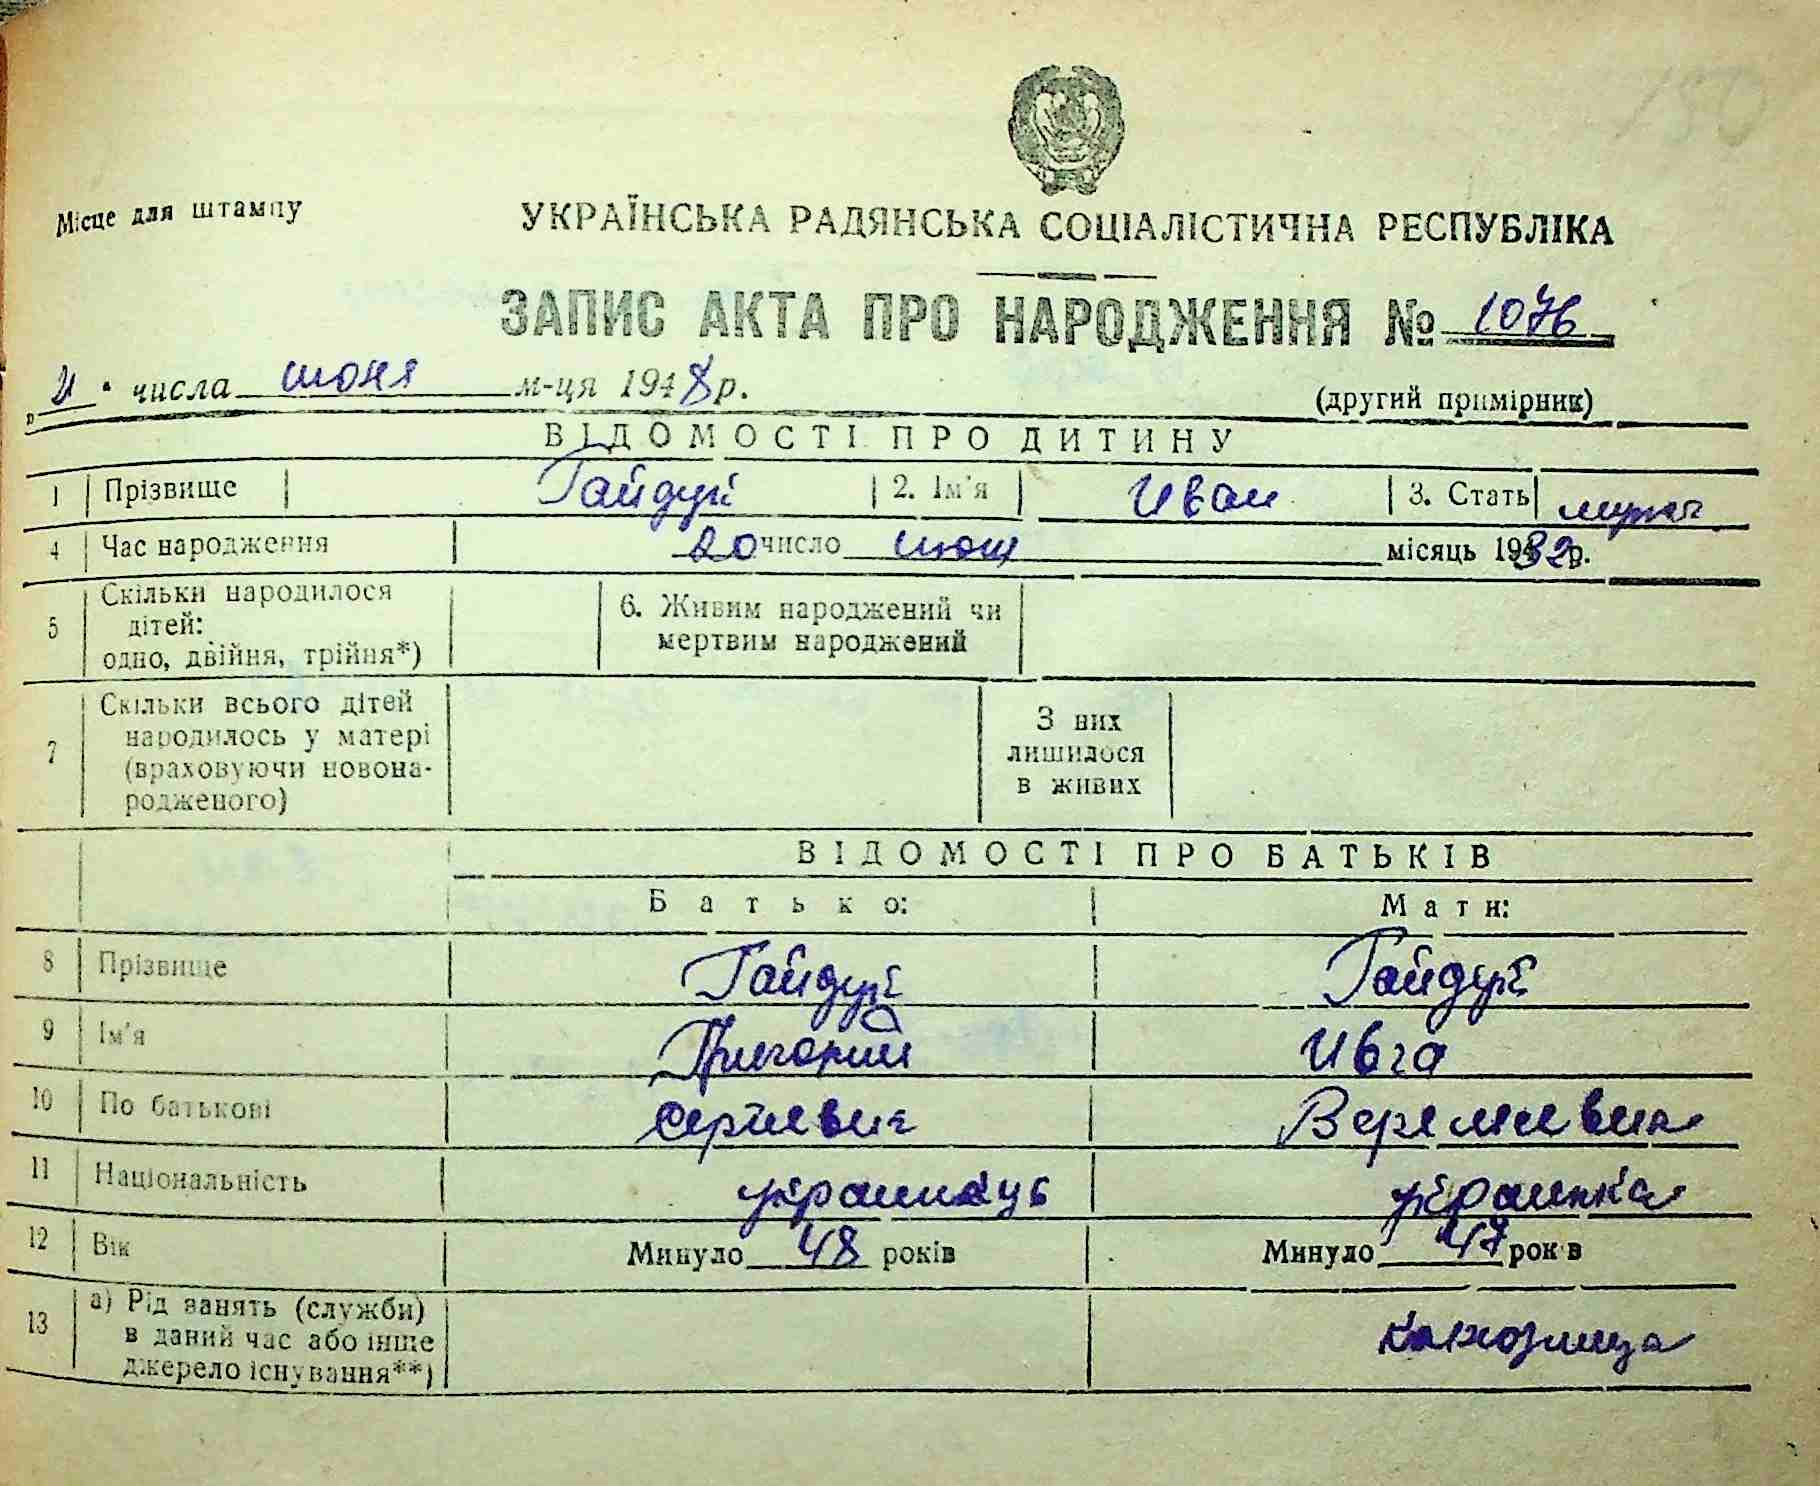 Місце для штампу
УКРАЇНСЬКА РАДЯНСЬКА СОЦІАЛІСТИЧНА РЕСПУБЛІКА
ЗАПИС АКТА ПРО НАРОДЖЕННЯ № 1076
" 21 " числа июня м-ця 1948 р.
(другий примірник)
ВІДОМОСТІ ПРО ДИТИНУ
1 Прізвище Гайдук 2. Ім'я Иван 3. Стать мужс
4 Час народження 20 число июня місяць 1932 р.
5 Скільки народилося дітей: одно, двійня, трійня*) 6. Живим народжений чи мертвим народжений
7 Скільки всього дітей народилось у матері (враховуючи новонародженого) З них лишилося в живих
ВІДОМОСТІ ПРО БАТЬКІВ
Батько: Мати:
8 Прізвище Гайдук Гайдук
9 Ім'я Григорий Ивга
10 По батькові Сергиевич
11 Національність украинець украинка
12 Вік Минуло 48 років Минуло 47 років
13 а) Рід занять (служби) в даний час або інше джерело існування**) колхозница